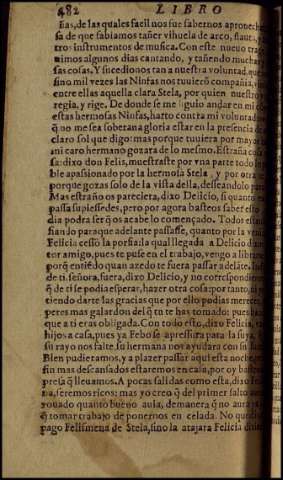 482 LIBRO
ñas, de las quales facil nos fue sabernos aprouech
sa de que sabiamos tañer vihuela de arco, flauta, y
tros instrumentos de musica. Con este nueuo tra
nimos algunos dias cantando, y tañendo mucha
sas cosas. Y sucedionos tan a nuestra voluntad, que
sino mil vezes las Ninfas nos tuuierõ compañia, y
entre ellas aquella clara Stela, por quien nuestro
regia, y rige. De donde se me siguio andar en mi co
estas hermosas Ninfas, harto contra mi voluntad
q̃ no me sea soberana gloria estar en la presencia de
claro sol que digo: mas porque tuuiera por mayor
mi caro hermano gozara de lo mesmo. Estraña cosa
sa: dixo don Felis, muestraste por vna parte todo
ble apasionado por la hermosa Stela, y por otra
porque gozas solo de la vista della, desseandolo para
Mas estraño os pareciera, dixo Delicio, si quanto en
passa supiessedes, pero por agora basteos saber esto
dia podra ser q̃os acabe lo començado. Todos esta
fiando para que adelante passasse, quanto por la ven
Felicia cessò la porfia: la qual llegada a Delicio dixo
tor amigo, pues te puse en el trabajo, vengo a librar
porq̃ entiẽdo quan azedo te fuera passar adelãte.
de ti, señora, fuera, dixo Delicio, y no correspondien
q̃ de ti se podia esperar, hazer otra cosa: por tanto,
tiendo darte las gracias que por ello podias merecer
peres mas galardon del q̃ tu te has tomado: pues
que a ti eras obligada. Con todo esto, dixo Felicia,
hijos a casa, pues ya Febo se apressura para la suya,
su rayo nos falte, su hermana nos ayudarà con
Bien pudieramos, y a plazer passar aqui esta noche
sin mas descansados estaremos en casa, por oy bast
presa q̃ lleuamos. A pocas salidas como esta, dixo Fe
na, seremos ricos: mas yo creo q̃ del primer salto au
rouado quanto bueno auia, demanera q̃ no aura
q̃ tomar trabajo de ponernos en celada. No qu
pago Felismena de Stela, sino la atajara Felicia